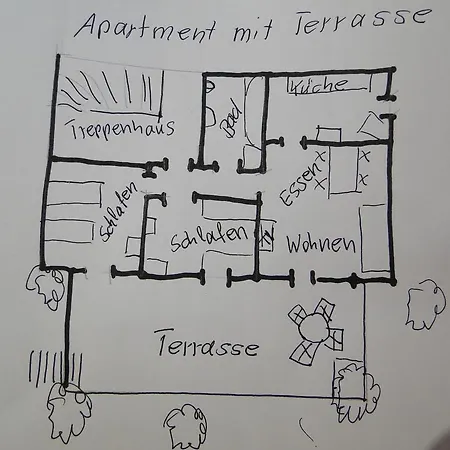 Apartment mit Terrasse
Küche
Bad
Treppenhaus
Essen
Schlafen
Schlafen
Wohnen
Terrasse